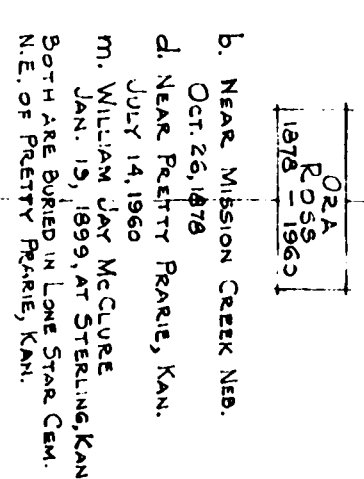 ORA
ROSS
1878 - 1960
b. NEAR MISSION CREEK NEB.
OCT. 26, 1878
d. NEAR PRETTY PRARIE, KAN.
JULY 14, 1960
m. WILLIAM JAY MCCLURE
JAN. 19, 1899, AT STERLING, KAN
BOTH ARE BURIED IN LONE STAR CEM.
N.E. OF PRETTY PRAIRIE, KAN.